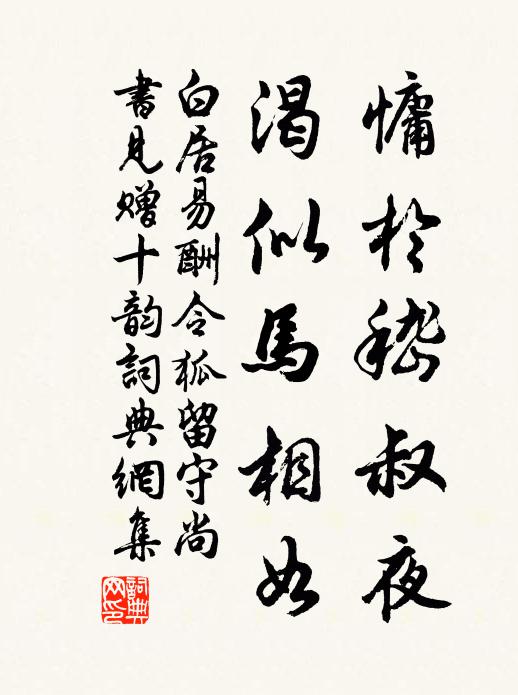 慵於嵇叔夜
渴似馬相如
白居易酬令狐留守尚
書見赠十韵詞典網集
詞典网印